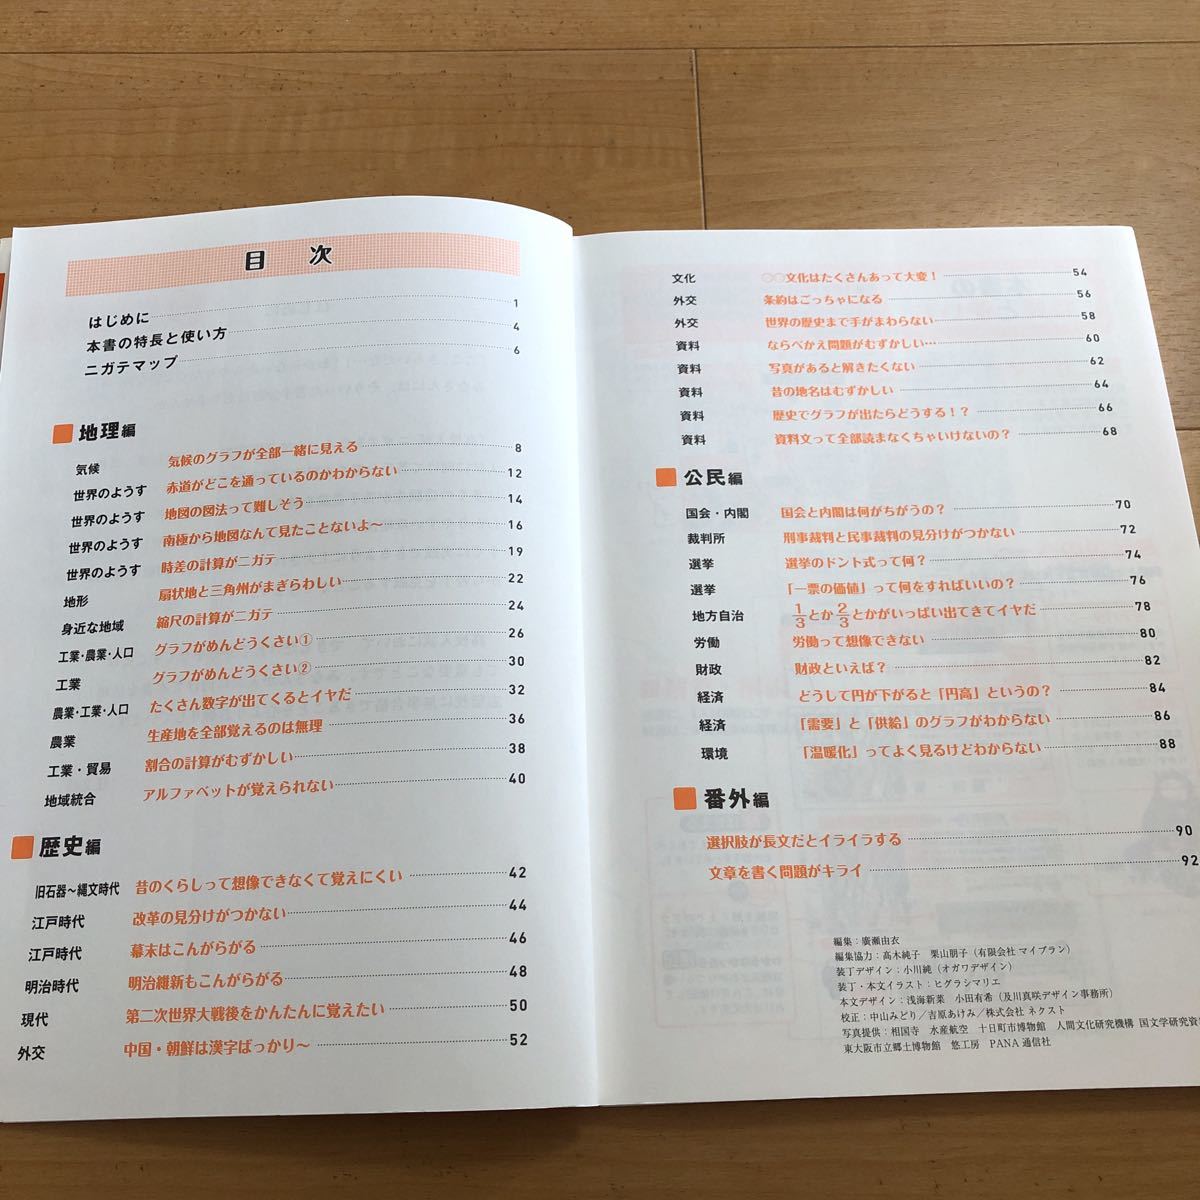 目 次
はじめに 1
本書の特長と使い方 4
ニガテマップ 6
地理編
気候 気候のグラフが全部一緒に見える 8
世界のようす 赤道がどこを通っているのかわからない 12
世界のようす 地図の図法って難しそう 14
世界のようす 南極から地図なんて見たことないよ〜 16
世界のようす 時差の計算がニガテ 19
地形 扇状地と三角州がまぎらわしい 22
身近な地域 縮尺の計算がニガテ 24
工業・農業・人口 グラフがめんどうくさい① 26
工業 グラフがめんどうくさい② 30
農業・工業・人口 たくさん数字が出てくるとイヤだ 32
農業 生産地を全部覚えるのは無理 36
工業・貿易 割合の計算がむずかしい 38
地域統合 アルファベットが覚えられない 40
歴史編
旧石器〜縄文時代 昔のくらしって想像できなくて覚えにくい 42
江戸時代 改革の見分けがつかない 44
江戸時代 幕末はこんがらがる 46
明治時代 明治維新もこんがらがる 48
現代 第二次世界大戦後をかんたんに覚えたい 50
外交 中国・朝鮮は漢字ばっかり〜 52
文化 ○○文化はたくさんあって大変! 54
外交 条約はごっちゃになる 56
外交 世界の歴史まで手がまわらない 58
資料 ならべかえ問題がむずかしい… 60
資料 写真があると解きたくない 62
資料 昔の地名はむずかしい 64
資料 歴史でグラフが出たらどうする!? 66
資料 資料文って全部読まなくちゃいけないの? 68
公民編
国会・内閣 国会と内閣は何がちがうの? 70
裁判所 刑事裁判と民事裁判の見分けがつかない 72
選挙 選挙のドント式って何? 74
選挙 「一票の価値」って何をすればいいの? 76
地方自治 1/3とか2/3とかがいっぱい出てきてイヤだ 78
労働 労働って想像できない 80
財政 財政といえば? 82
経済 どうして円が下がると「円高」というの? 84
経済 「需要」と「供給」のグラフがわからない 86
環境 「温暖化」ってよく見るけどわからない 88
番外編
選択肢が長文だとイライラする 90
文章を書く問題がキライ 92
編集：廣瀬由衣
編集協力：高木純子 栗山朋子（有限会社 マイプラン）
装丁デザイン：小川純（オガワデザイン）
装丁・本文イラスト：ヒグラシマリエ
本文デザイン：浅海新菜 小田有希（及川真咲デザイン事務所）
校正：中山みどり／吉原あけみ／株式会社 ネクスト
写真提供：相国寺 水産航空 十日町市博物館 人間文化研究機構 国文学研究資
東大阪市立郷土博物館 悠工房 PANA通信社